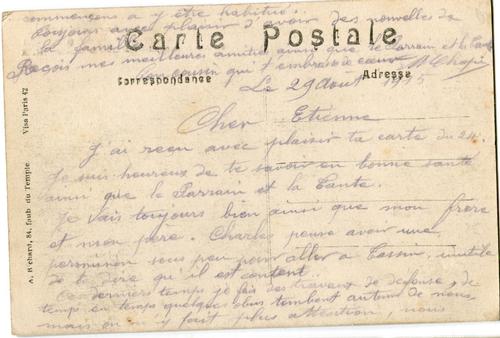 commençons a y être habitués.
toujours avec plaisir d'avoir des nouvelles de
la famille
Carte Postale
Reçois mes meilleures amitiés ainsi que le Parrain et la Tante
cousin qui t'embrasse
Correspondance
Adresse
Le 29 août 1915
Cher Etienne
J'ai reçu avec plaisir ta carte du 24.
Je suis heureux de te savoir en bonne santé
ainsi que le Parrain et la Tante.
Je vais toujours bien ainsi que mon frère
et mon père. Charles pense avoir une
permission sous peu pour aller a inutile
de te dire qu'il est content.
Ces derniers temps je fais des travaux de défense, de
temps en temps quelques obus tombent autour de nous
mais on n'y fait plus attention, nous
A. Richard, 84, faub. du Temple
Visa Paris 42